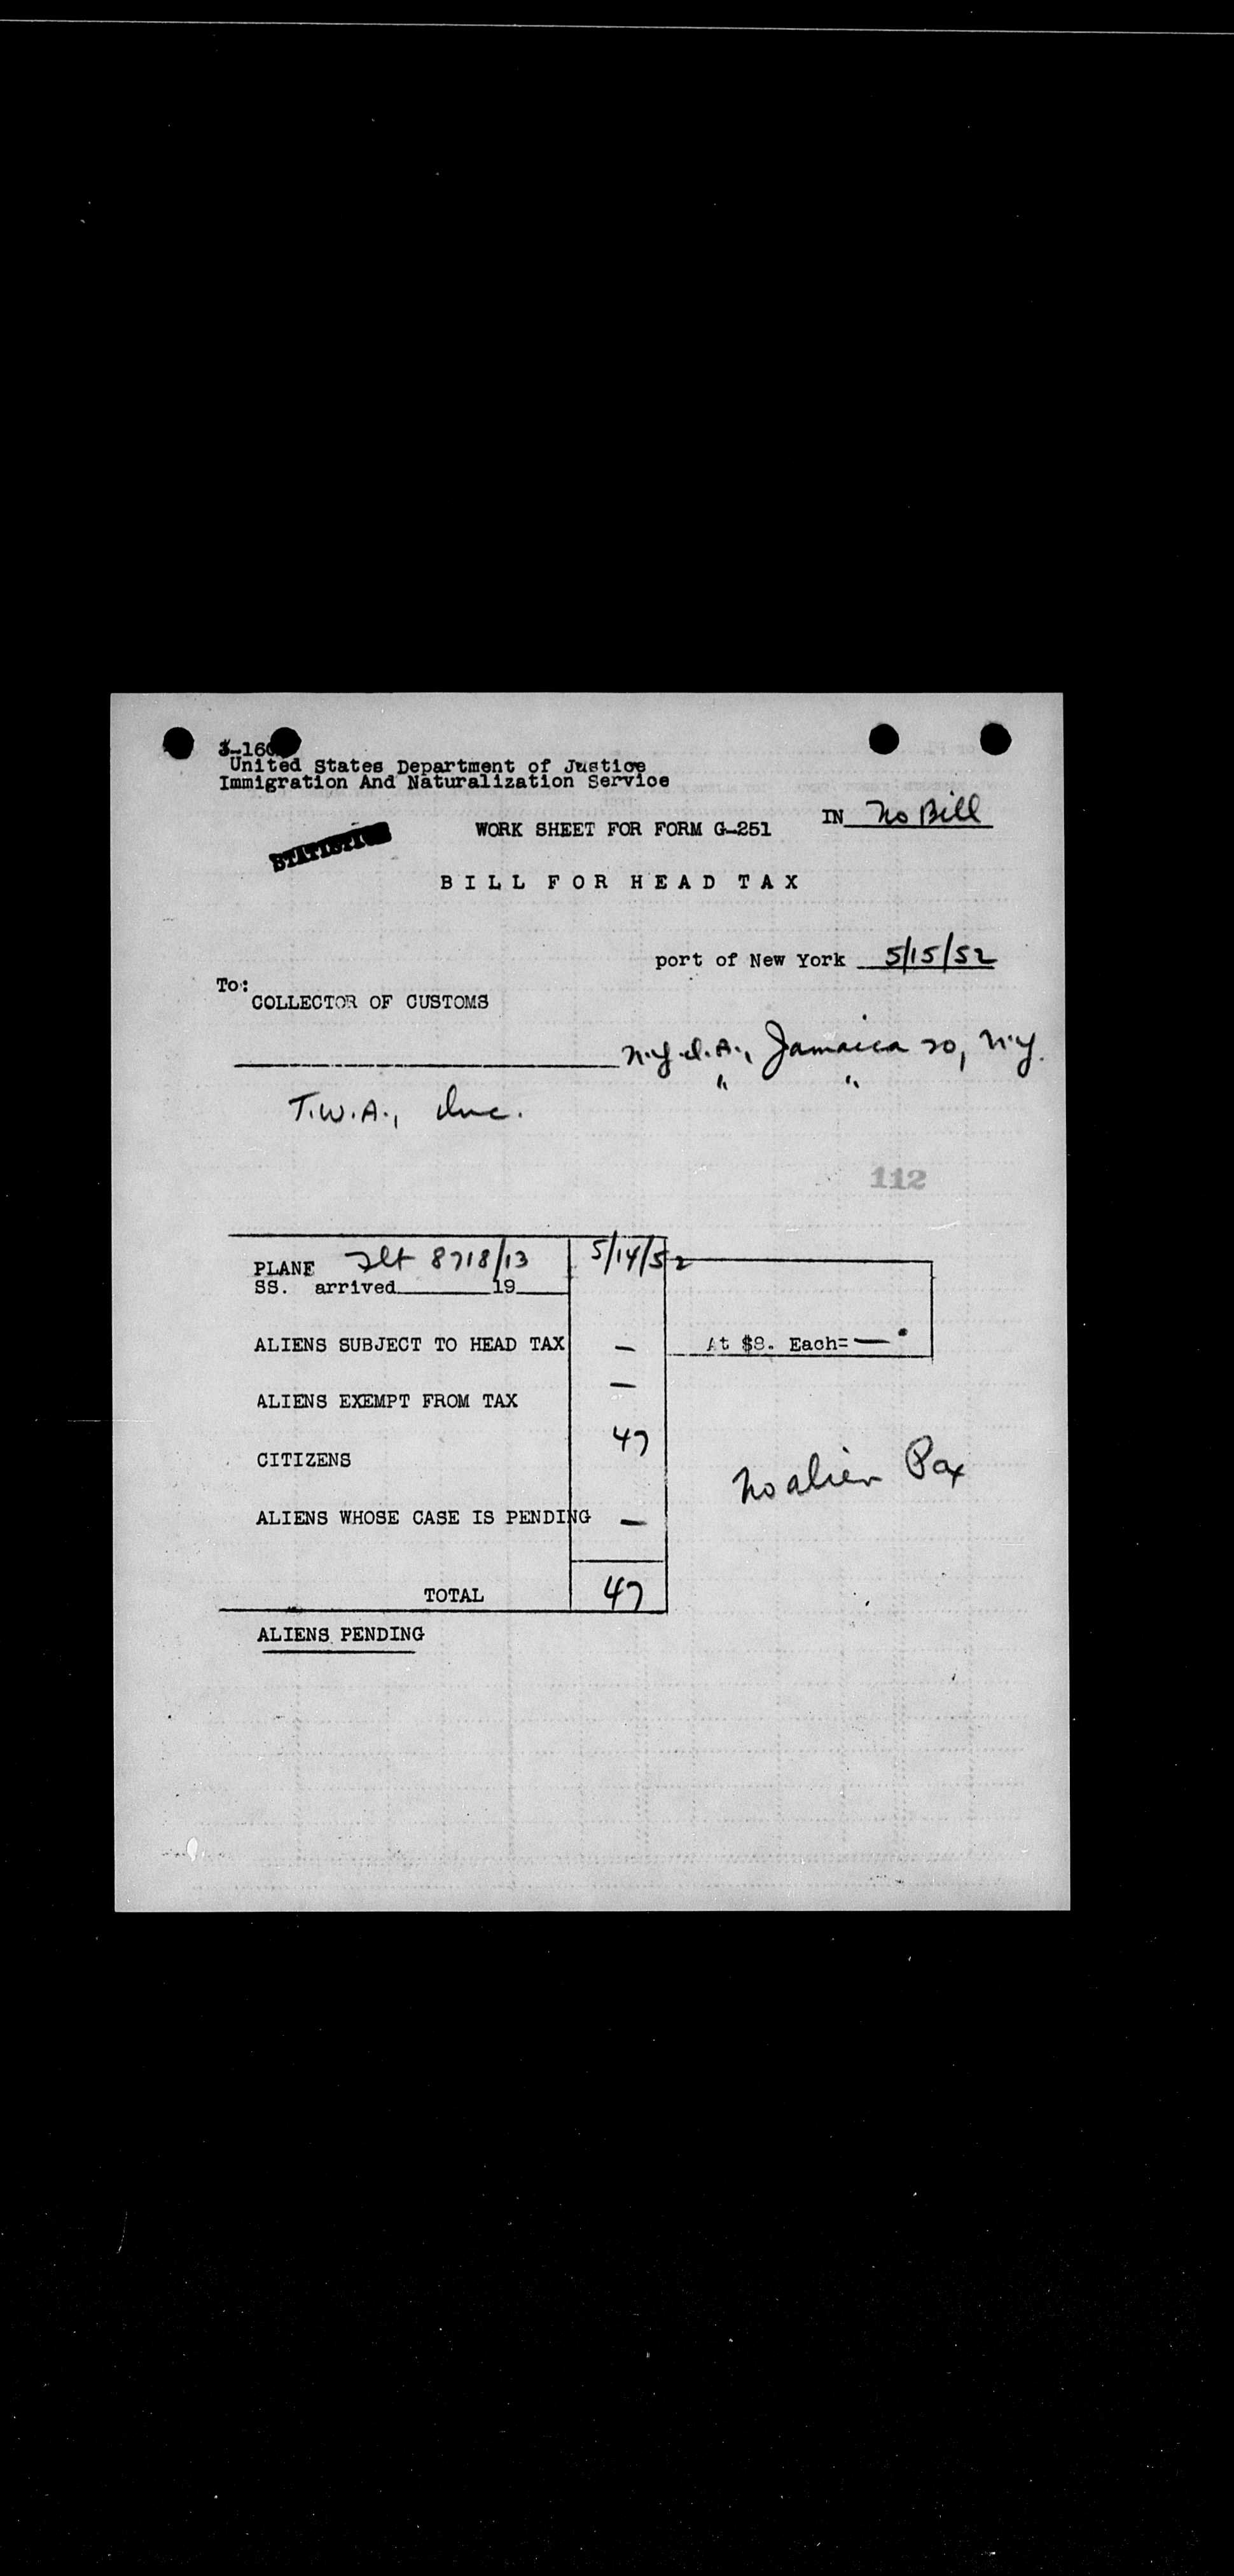 3-160
United States Department of Justice
Immigration And Naturalization Service
IN No Bill
STATISTICS
WORK SHEET FOR FORM G-251
BILL FOR HEAD TAX
port of New York 5/15/52
To:
COLLECTOR OF CUSTOMS
N.Y.I.A., Jamaica 20, N.Y.
" "
T.W.A., Inc.
112
PLANE Flt 8718/13 5/14/52
SS. arrived 19
ALIENS SUBJECT TO HEAD TAX — At $8. Each= — .
ALIENS EXEMPT FROM TAX —
CITIZENS 47
No alien Pax
ALIENS WHOSE CASE IS PENDING —
TOTAL 47
ALIENS PENDING